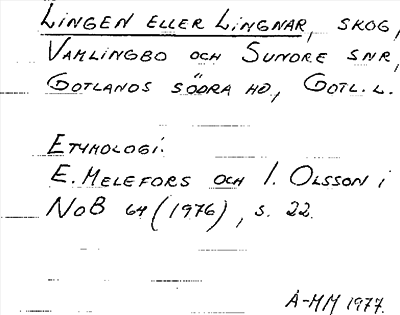 LINGEN ELLER LINGNAR, SKOG,
VAMLINGBO OCH SUNDRE SNR,
GOTLANDS SÖDRA HD., GOTL. L.
ETYMOLOGI:
E. MELEFORS OCH I. OLSSON i
NoB 64 (1976), s. 22.
Å-MM 1977.